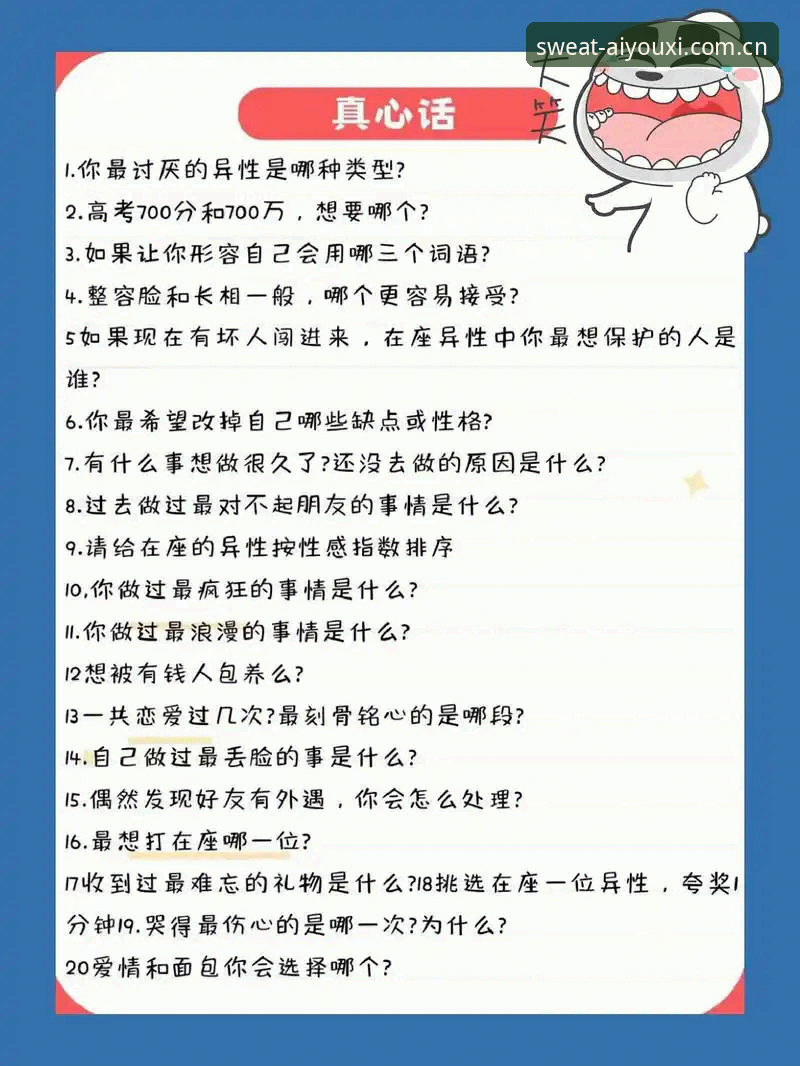 sweat-aiyouxi.com.cn
大笑
真心话
1.你最讨厌的异性是哪种类型?
2.高考700分和700万，想要哪个?
3.如果让你形容自己会用哪三个词语?
4.整容脸和长相一般，哪个更容易接受?
5如果现在有坏人闯进来，在座异性中你最想保护的人是
谁?
6.你最希望改掉自己哪些缺点或性格?
7.有什么事想做很久了?还没去做的原因是什么?
8.过去做过最对不起朋友的事情是什么?
9.请给在座的异性按性感指数排序
10,你做过最疯狂的事情是什么?
11.你做过最浪漫的事情是什么?
12想被有钱人包养么?
13一共恋爱过几次?最刻骨铭心的是哪段?
14.自己做过最丢脸的事是什么?
15.偶然发现好友有外遇，你会怎么处理?
16.最想打在座哪一位?
17收到过最难忘的礼物是什么?18挑选在座一位异性，夸奖1
分钟19.哭得最伤心的是哪一次?为什么?
20爱情和面包你会选择哪个?